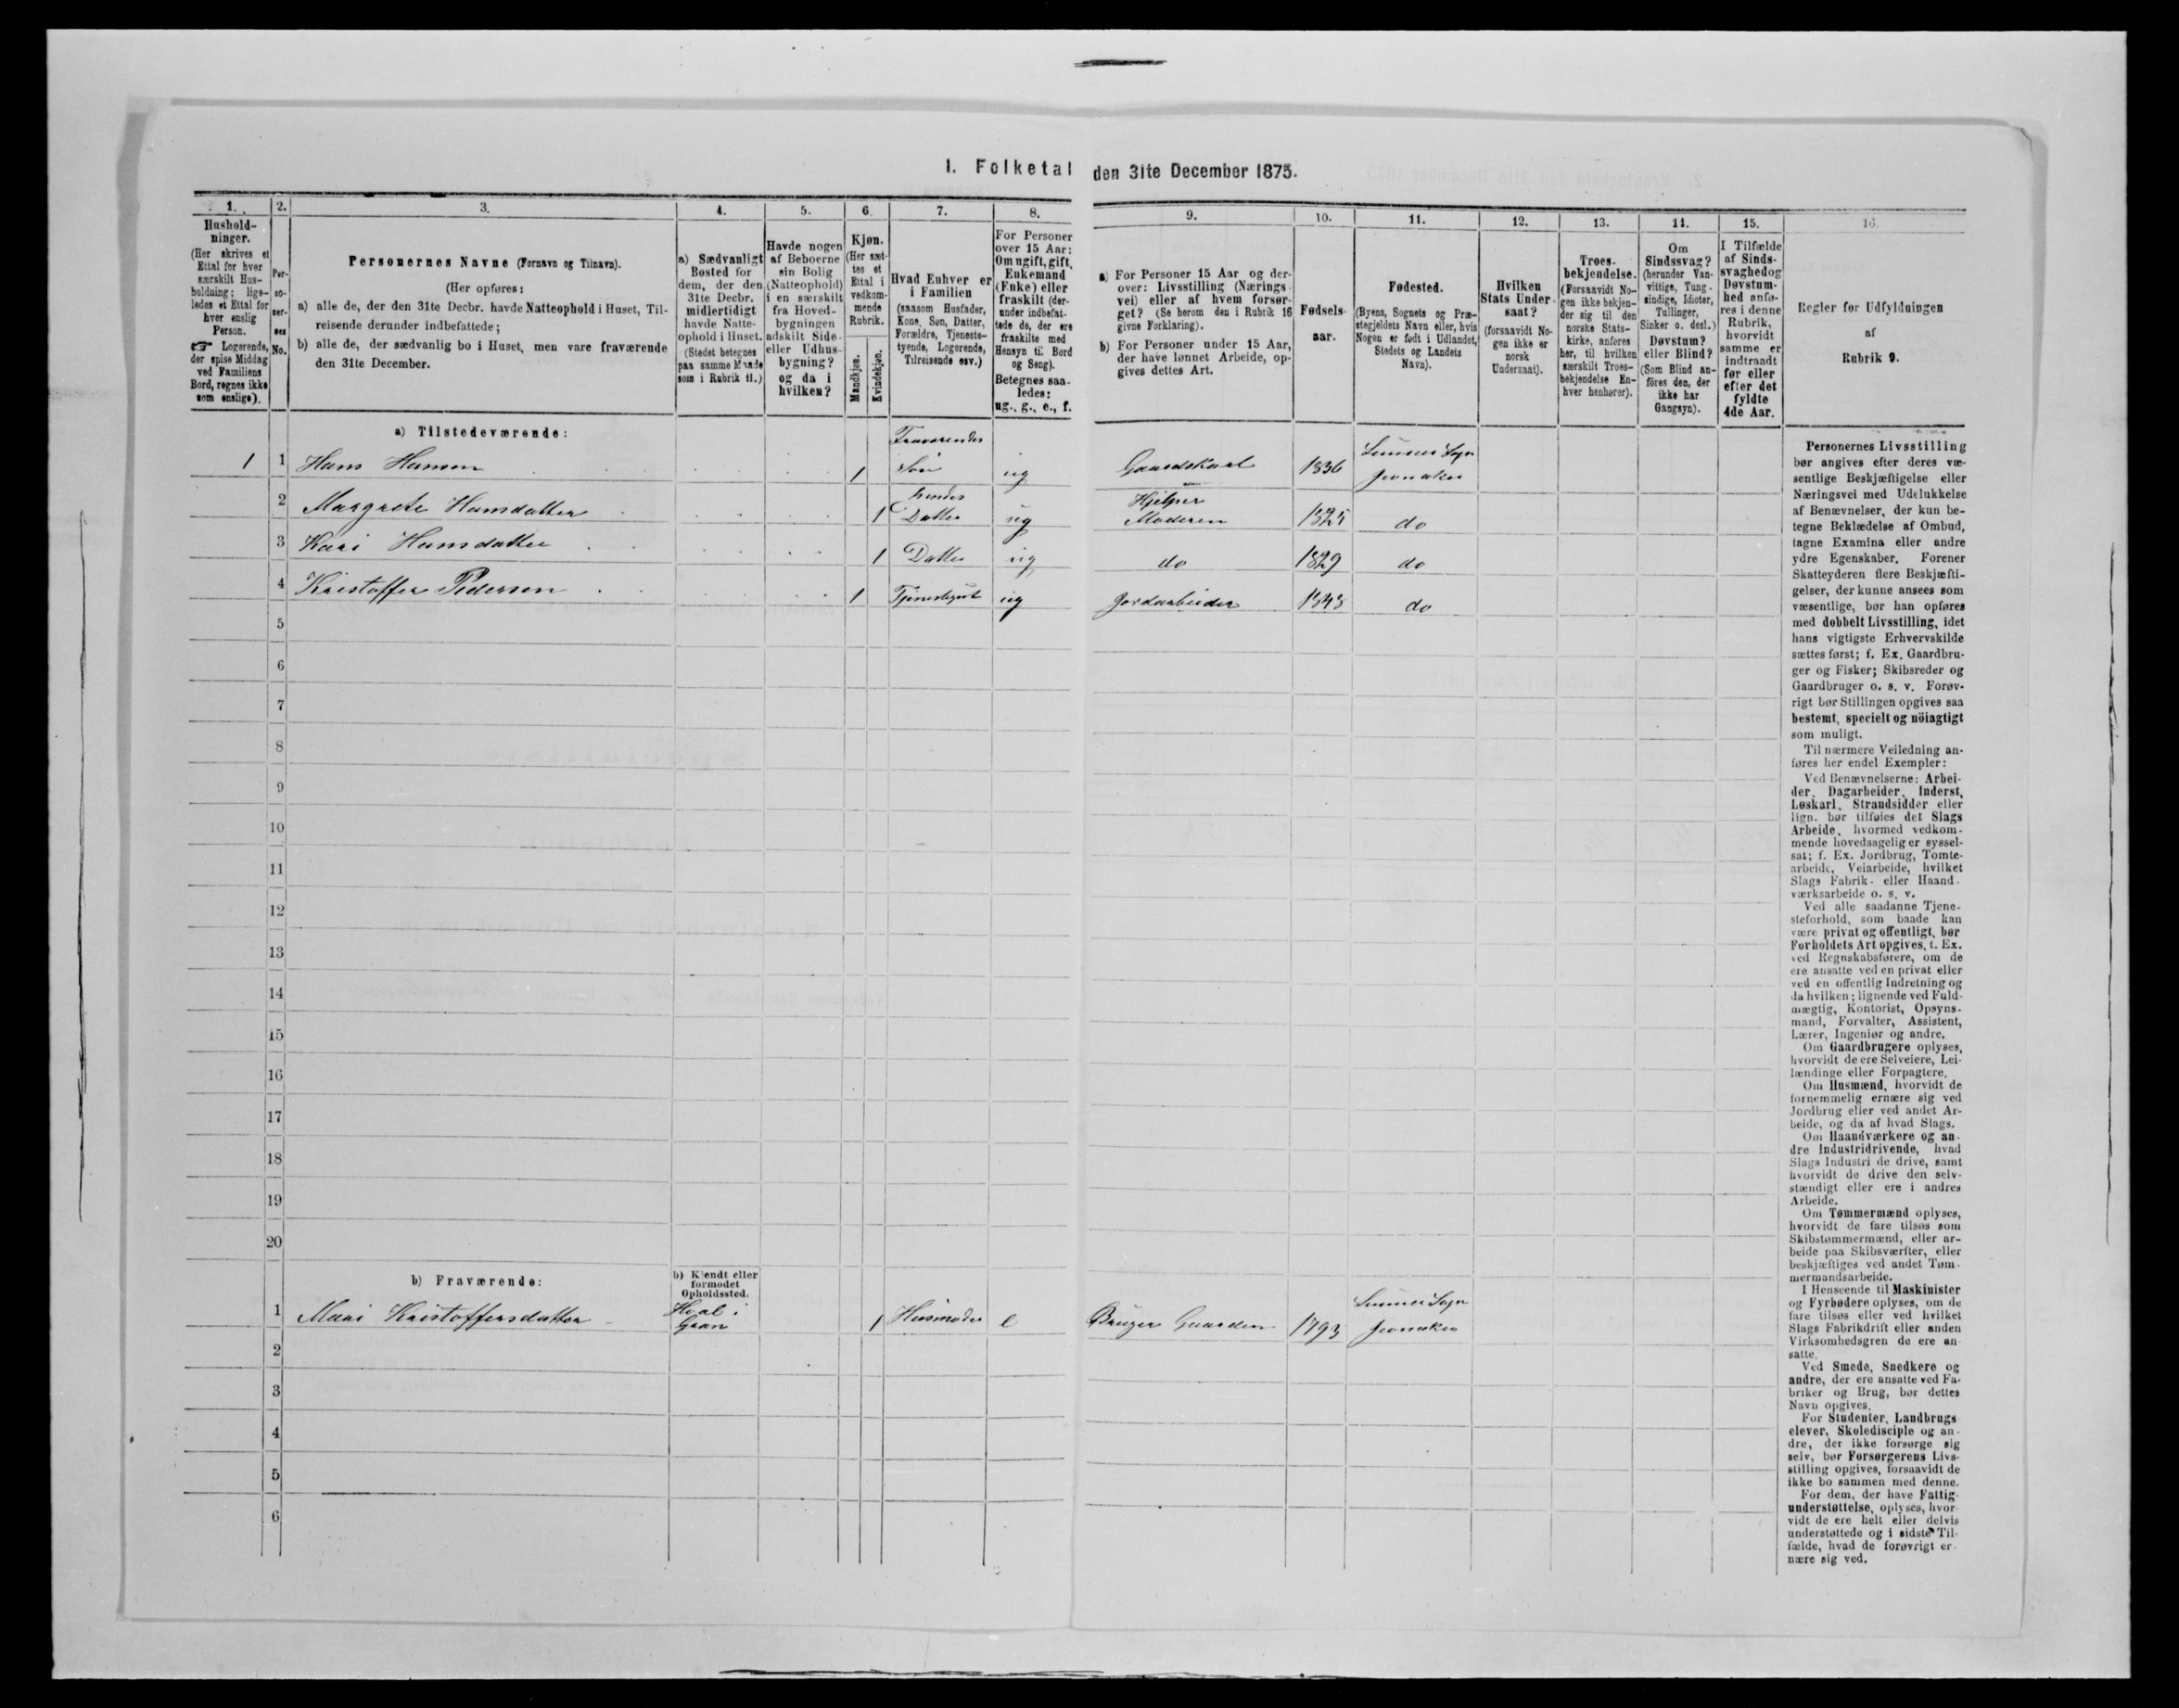 I. Folketal den 31te December 1875.
1. 2. 3. 4. 5. 6. 7. 8. 9. 10. 11. 12. 13. 14. 15. 16.
Hushold-
ninger.
(Her skrives et
Ettal for hver
særskilt Hus-
holdning; lige-
ledes et Ettal for
hver enslig
Person.
☞ Logerende,
der spise Middag
ved Familiens
Bord, regnes ikke
som enslige).
Per-
so-
ner-
nes
No.
Personernes Navne (Fornavn og Tilnavn).
(Her opføres:
a) alle de, der den 31te Decbr. havde Natteophold i Huset, Til-
reisende derunder indbefattede;
b) alle de, der sædvanlig bo i Huset, men vare fraværende
den 31te December.
a) Sædvanligt
Bosted for
dem, der den
31te Decbr.
midlertidigt
havde Natte-
ophold i Huset.
(Stedet betegnes
paa samme Maade
som i Rubrik 11.)
Havde nogen
af Beboerne
sin Bolig
(Natteophold)
i en særskilt
fra Hoved-
bygningen
adskilt Side-
eller Udhus-
bygning?
og da i
hvilken?
Kjøn.
(Her sæt-
tes et
Ettal i
vedkom-
mende
Rubrik.
Mandkjøn.
Kvindekjøn.
Hvad Enhver er
i Familien
(saasom Husfader,
Kone, Søn, Datter,
Forældre, Tjeneste-
tyende, Logerende,
Tilreisende osv.)
For Personer
over 15 Aar:
Om ugift, gift,
Enkemand
(Enke) eller
fraskilt (der-
under indbefat-
tede de, der ere
fraskilte med
Hensyn til Bord
og Seng).
Betegnes saa-
ledes:
ug., g., e., f.
a) For Personer 15 Aar og der-
over: Livsstilling (Nærings-
vei) eller af hvem forsør-
get? (Se herom den i Rubrik 16
givne Forklaring).
b) For Personer under 15 Aar,
der have lønnet Arbeide, op-
gives dettes Art.
Fødsels-
aar.
Fødested.
(Byens, Sognets og Præ-
stegjeldets Navn eller, hvis
Nogen er født i Udlandet,
Stedets og Landets
Navn).
Hvilken
Stats Under-
saat?
(forsaavidt No-
gen ikke er
norsk
Undersaat).
Troes-
bekjendelse.
(Forsaavidt No-
gen ikke bekjen-
der sig til den
norske Stats-
kirke, anføres
her, til hvilken
særskilt Troes-
bekjendelse En-
hver henhører).
Om
Sindssvag?
(herunder Van-
vittige, Tung-
sindige, Idioter,
Tullinger,
Sinker o. desl.)
Døvstum?
eller Blind?
(Som Blind an-
føres den, der
ikke har
Gangsyn).
I Tilfælde
af Sinds-
svaghed og
Døvstum-
hed anfø-
res i denne
Rubrik,
hvorvidt
samme er
indtraadt
før eller
efter det
fyldte
4de Aar.
Regler for Udfyldningen
af
Rubrik 9.
a) Tilstedeværende:
1 1 Hans Hansen 1 Fraværendes Søn ug Gaardskarl 1836 Sinner Sogn Jevnaker
2 Margrete Hansdatter 1 hendes Datter ug Hjelper Moderen 1825 do
3 Kari Hansdatter 1 Datter ug do 1829 do
4 Kristoffer Pedersen 1 Tjenestegut ug Jordarbeider 1843 do
5
6
7
8
9
10
11
12
13
14
15
16
17
18
19
20
b) Fraværende:
b) Kjendt eller
formodet
Opholdssted.
1 Mari Kristoffersdatter Hval i Gran 1 Husmoder e Bruger Gaarden 1793 Sinner Sogn Jevnaker
2
3
4
5
6
Personernes Livsstilling
bør angives efter deres væ-
sentlige Beskjæftigelse eller
Næringsvei med Udelukkelse
af Benævnelser, der kun be-
tegne Beklædelse af Ombud,
tagne Examina eller andre
ydre Egenskaber. Forener
Skatteyderen flere Beskjæfti-
gelser, der kunne ansees som
væsentlige, bør han opføres
med dobbelt Livsstilling, idet
hans vigtigste Erhvervskilde
sættes først; f. Ex. Gaardbru-
ger og Fisker; Skibsreder og
Gaardbruger o. s. v. Forøv-
rigt bør Stillingen opgives saa
bestemt, specielt og nöiagtigt
som muligt.
Til nærmere Veiledning an-
føres her endel Exempler:
Ved Benævnelserne: Arbei-
der, Dagarbeider, Inderst,
Løskarl, Strandsidder eller
lign. bør tilføies det Slags
Arbeide, hvormed vedkom-
mende hovedsagelig er syssel-
sat; f. Ex. Jordbrug, Tomte-
arbeide, Veiarbeide, hvilket
Slags Fabrik- eller Haand-
værksarbeide o. s. v.
Ved alle saadanne Tjene-
steforhold, som baade kan
være privat og offentligt, bør
Forholdets Art opgives, t. Ex.
ved Regnskabsførere, om de
ere ansatte ved en privat eller
ved en offentlig Indretning og
da hvilken; lignende ved Fuld-
mægtig, Kontorist, Opsyns-
mand, Forvalter, Assistent,
Lærer, Ingeniør og andre.
Om Gaardbrugere oplyses,
hvorvidt de ere Selveiere, Lei-
lændinge eller Forpagtere.
Om Husmænd, hvorvidt de
fornemmelig ernære sig ved
Jordbrug eller ved andet Ar-
beide, og da af hvad Slags.
Om Haandværkere og an-
dre Industridrivende, hvad
Slags Industri de drive, samt
hvorvidt de drive den selv-
stændigt eller ere i andres
Arbeide.
Om Tømmermænd oplyses,
hvorvidt de fare tilsøs som
Skibstømmermænd, eller ar-
beide paa Skibsværfter, eller
beskjæftiges ved andet Tøm-
mermandsarbeide.
I Henseende til Maskinister
og Fyrbødere oplyses, om de
fare tilsøs eller ved hvilket
Slags Fabrikdrift eller anden
Virksomhedsgren de ere an-
satte.
Ved Smede, Snedkere og
andre, der ere ansatte ved Fa-
briker og Brug, bør dettes
Navn opgives.
For Studenter, Landbrugs-
elever, Skoledisciple og an-
dre, der ikke forsørge sig
selv, bør Forsørgerens Livs-
stilling opgives, forsaavidt de
ikke bo sammen med denne.
For dem, der have Fattig-
understøttelse, oplyses, hvor-
vidt de ere helt eller delvis
understøttede og i sidste Til-
fælde, hvad de forøvrigt er-
nære sig ved.